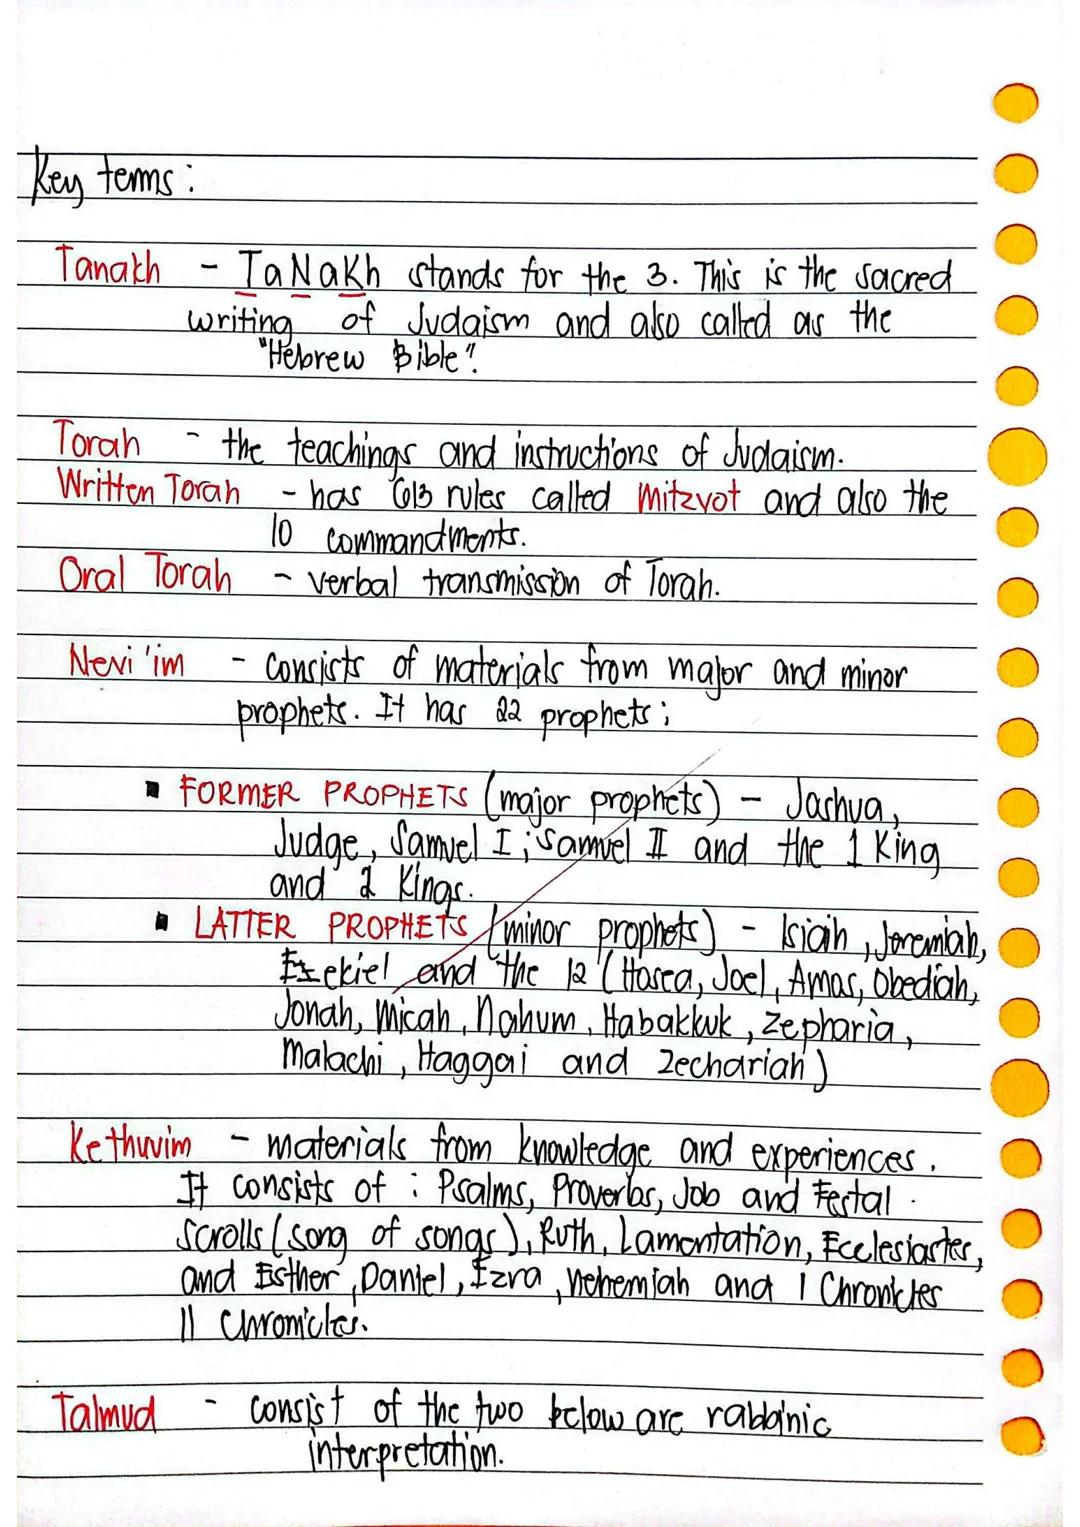 Key terms :
Tanakh - TaNaKh stands for the 3. This is the sacred
writing of Judaism and also called as the
"Hebrew Bible".
Torah - the teachings and instructions of Judaism.
Written Torah - has 613 rules called Mitzvot and also the
10 commandments.
Oral Torah - verbal transmission of Torah.
Nevi 'im - consists of materials from major and minor
prophets. It has 22 prophets ;
▪ FORMER PROPHETS (major prophets) - Joshua,
Judge, Samuel I ; Samuel II and the 1 King
and 2 Kings.
▪ LATTER PROPHETS (minor prophets) - Isiaih, Jeremiah,
Ezekiel and the 12 (Hosea, Joel, Amos, Obediah,
Jonah, Micah, Nahum, Habakkuk, Zepharia,
Malachi, Haggai and Zechariah)
Kethuvim - materials from knowledge and experiences.
It consists of : Psalms, Proverbs, Job and Festal
Scrolls (song of songs), Ruth, Lamentation, Ecclesiastes,
and Esther, Daniel, Ezra, Nehemiah and I Chronicles
II Chronicles.
Talmud - consist of the two below are rabbinic
interpretation.